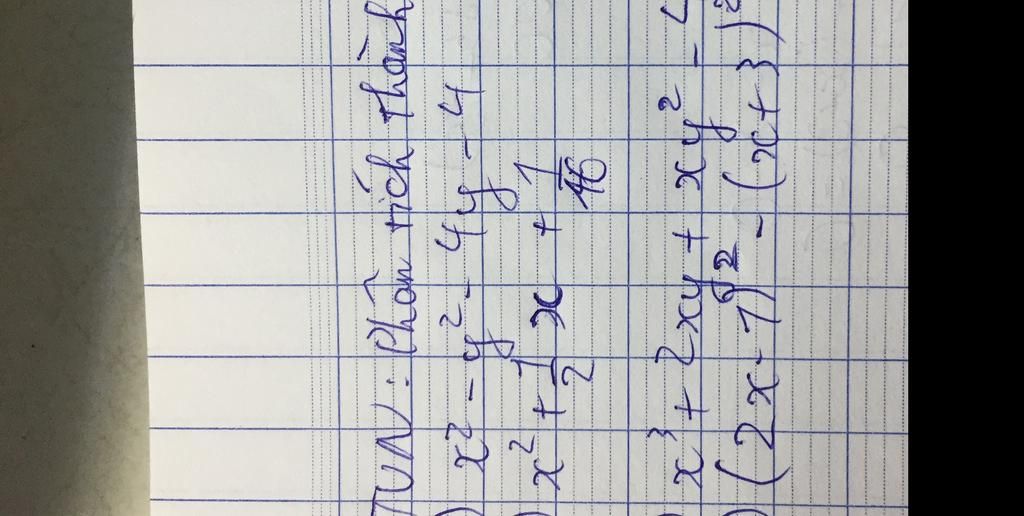 TVN: Phân tích thành
) x² - y² - 4y - 4
) x² + 1/2 x + 1/16
x³ + 2xy + xy² - 4
) (2x - 1)² - (x + 3)²